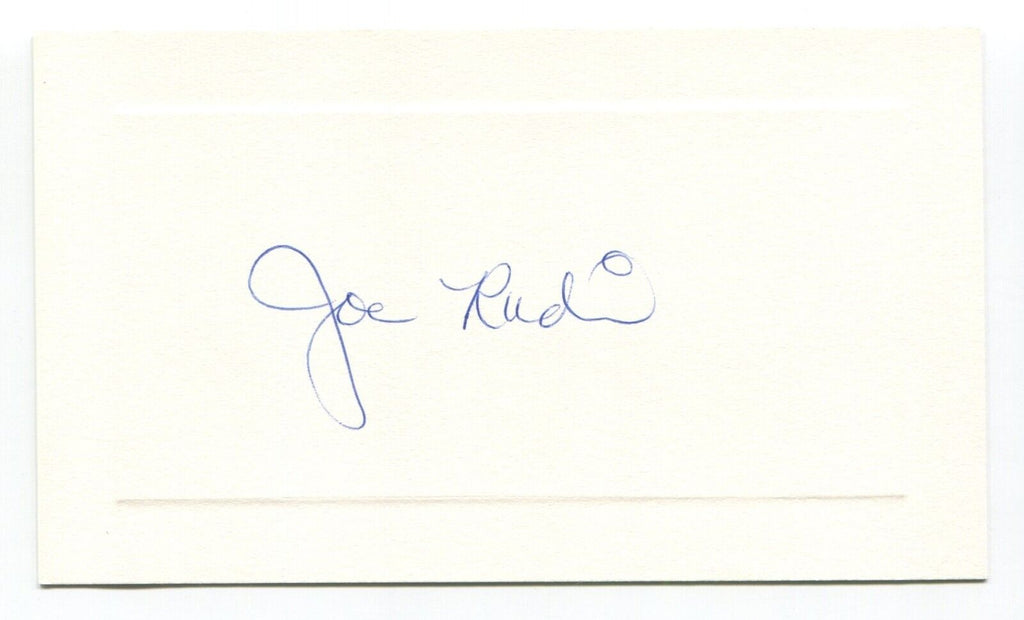 Joe Rudi